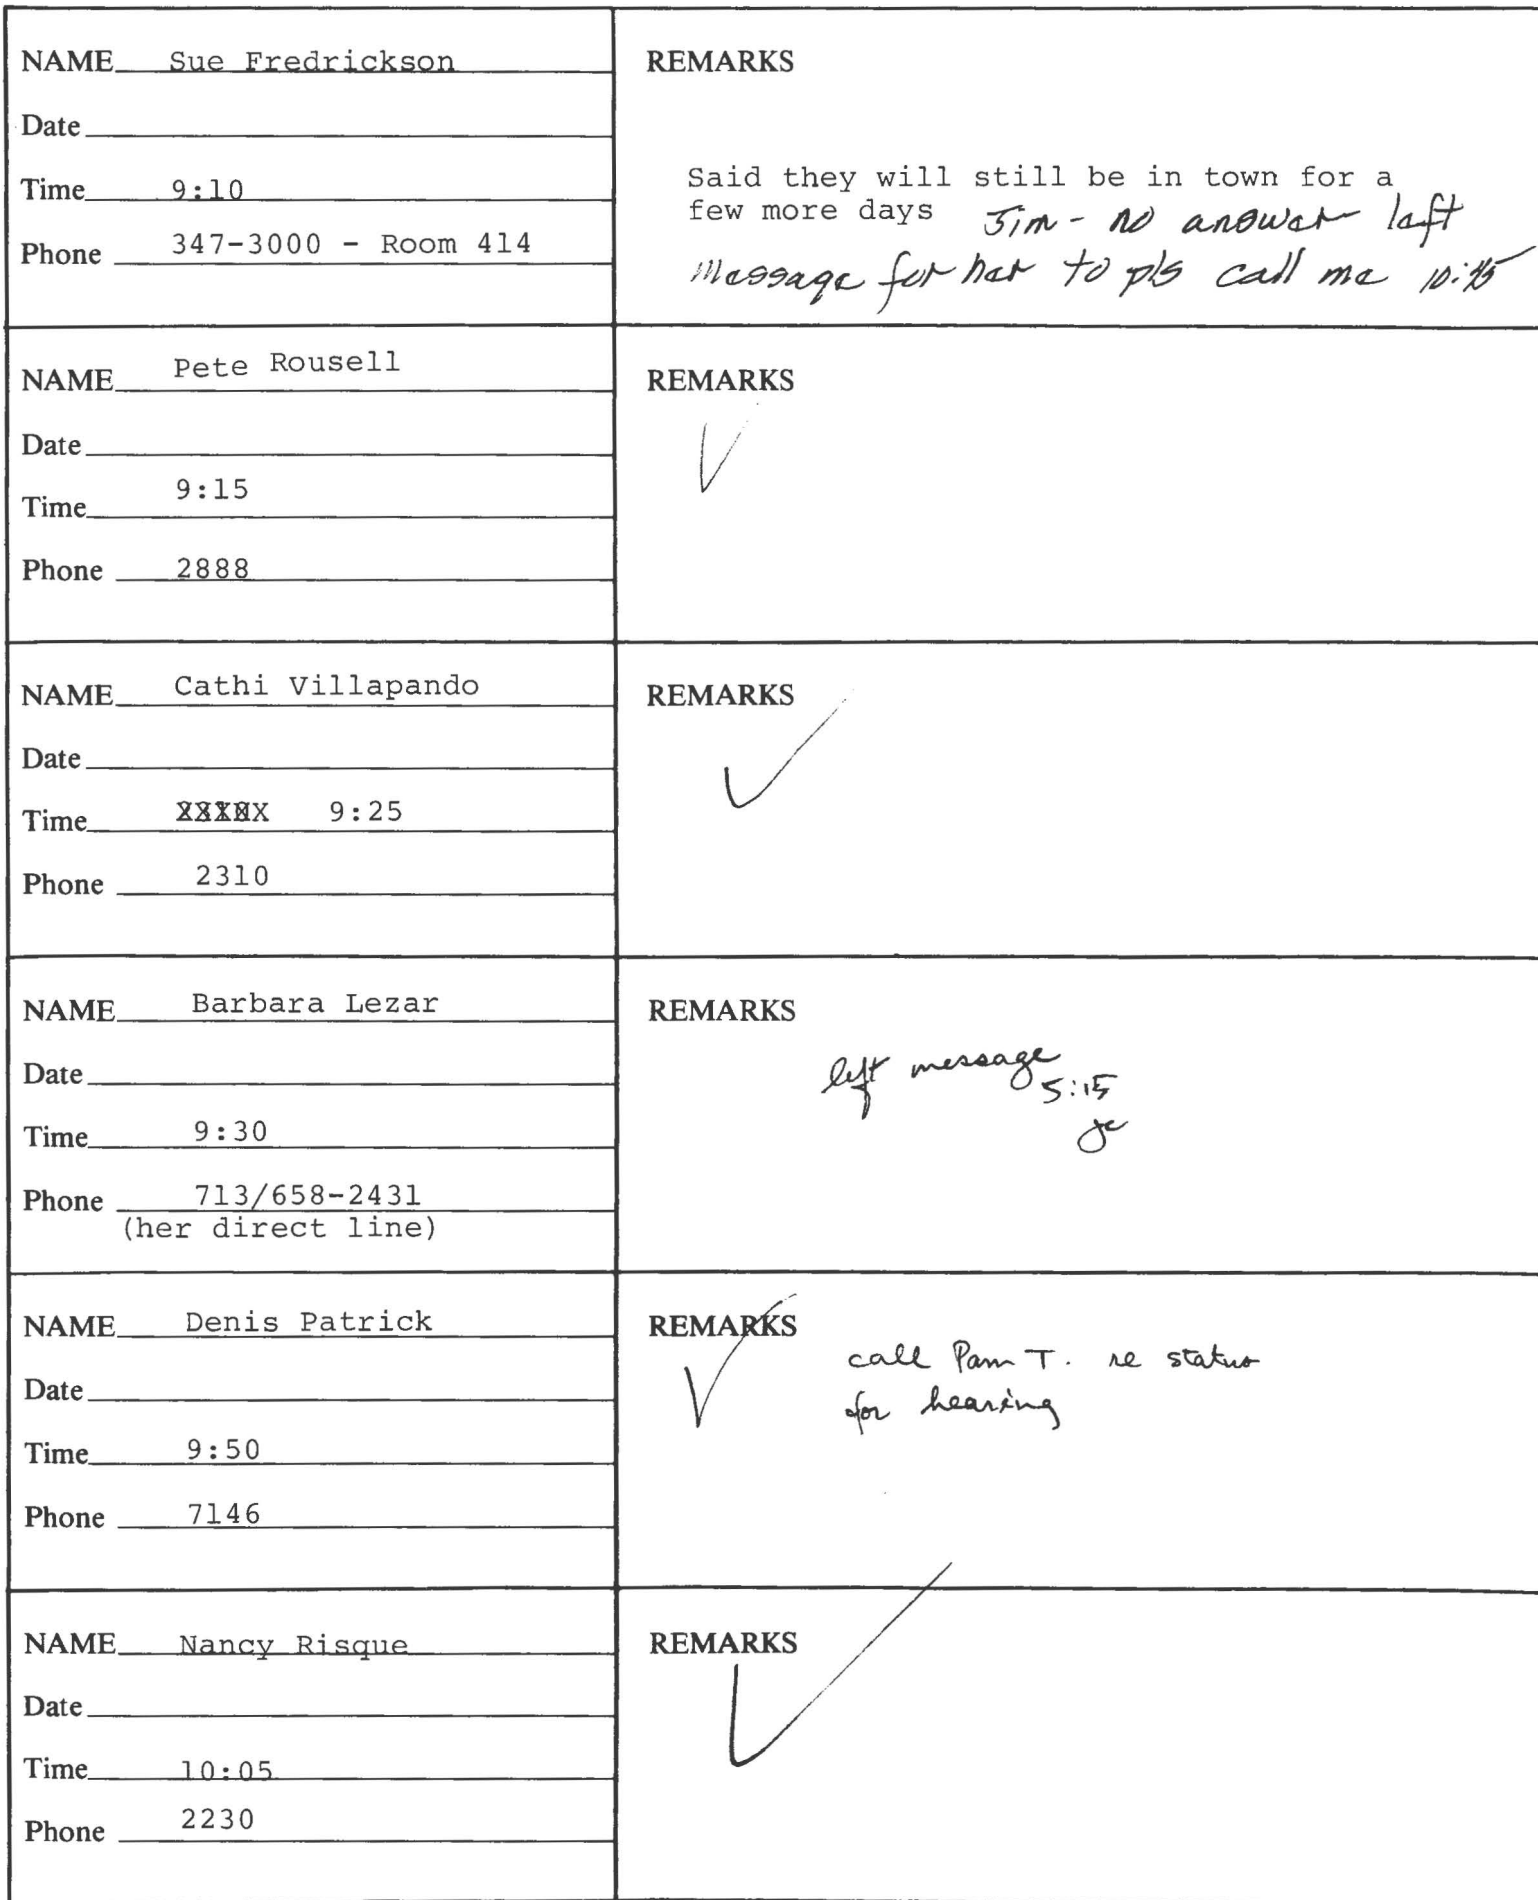 NAME Sue Fredrickson
Date
Time 9:10
Phone 347-3000 - Room 414
REMARKS
Said they will still be in town for a
few more days Jim - no answer left
message for her to pls call me 10:45
NAME Pete Rousell
Date
Time 9:15
Phone 2888
REMARKS
NAME Cathi Villapando
Date
Time 9:25
Phone 2310
REMARKS
NAME Barbara Lezar
Date
Time 9:30
Phone 713/658-2431
(her direct line)
REMARKS
left message
5:15
jc
NAME Denis Patrick
Date
Time 9:50
Phone 7146
REMARKS
call Pam T. re status
for hearing
NAME Nancy Risque
Date
Time 10:05
Phone 2230
REMARKS